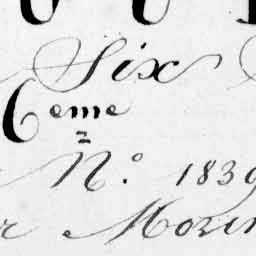 Six
6eme
N.° 1839
r Morin